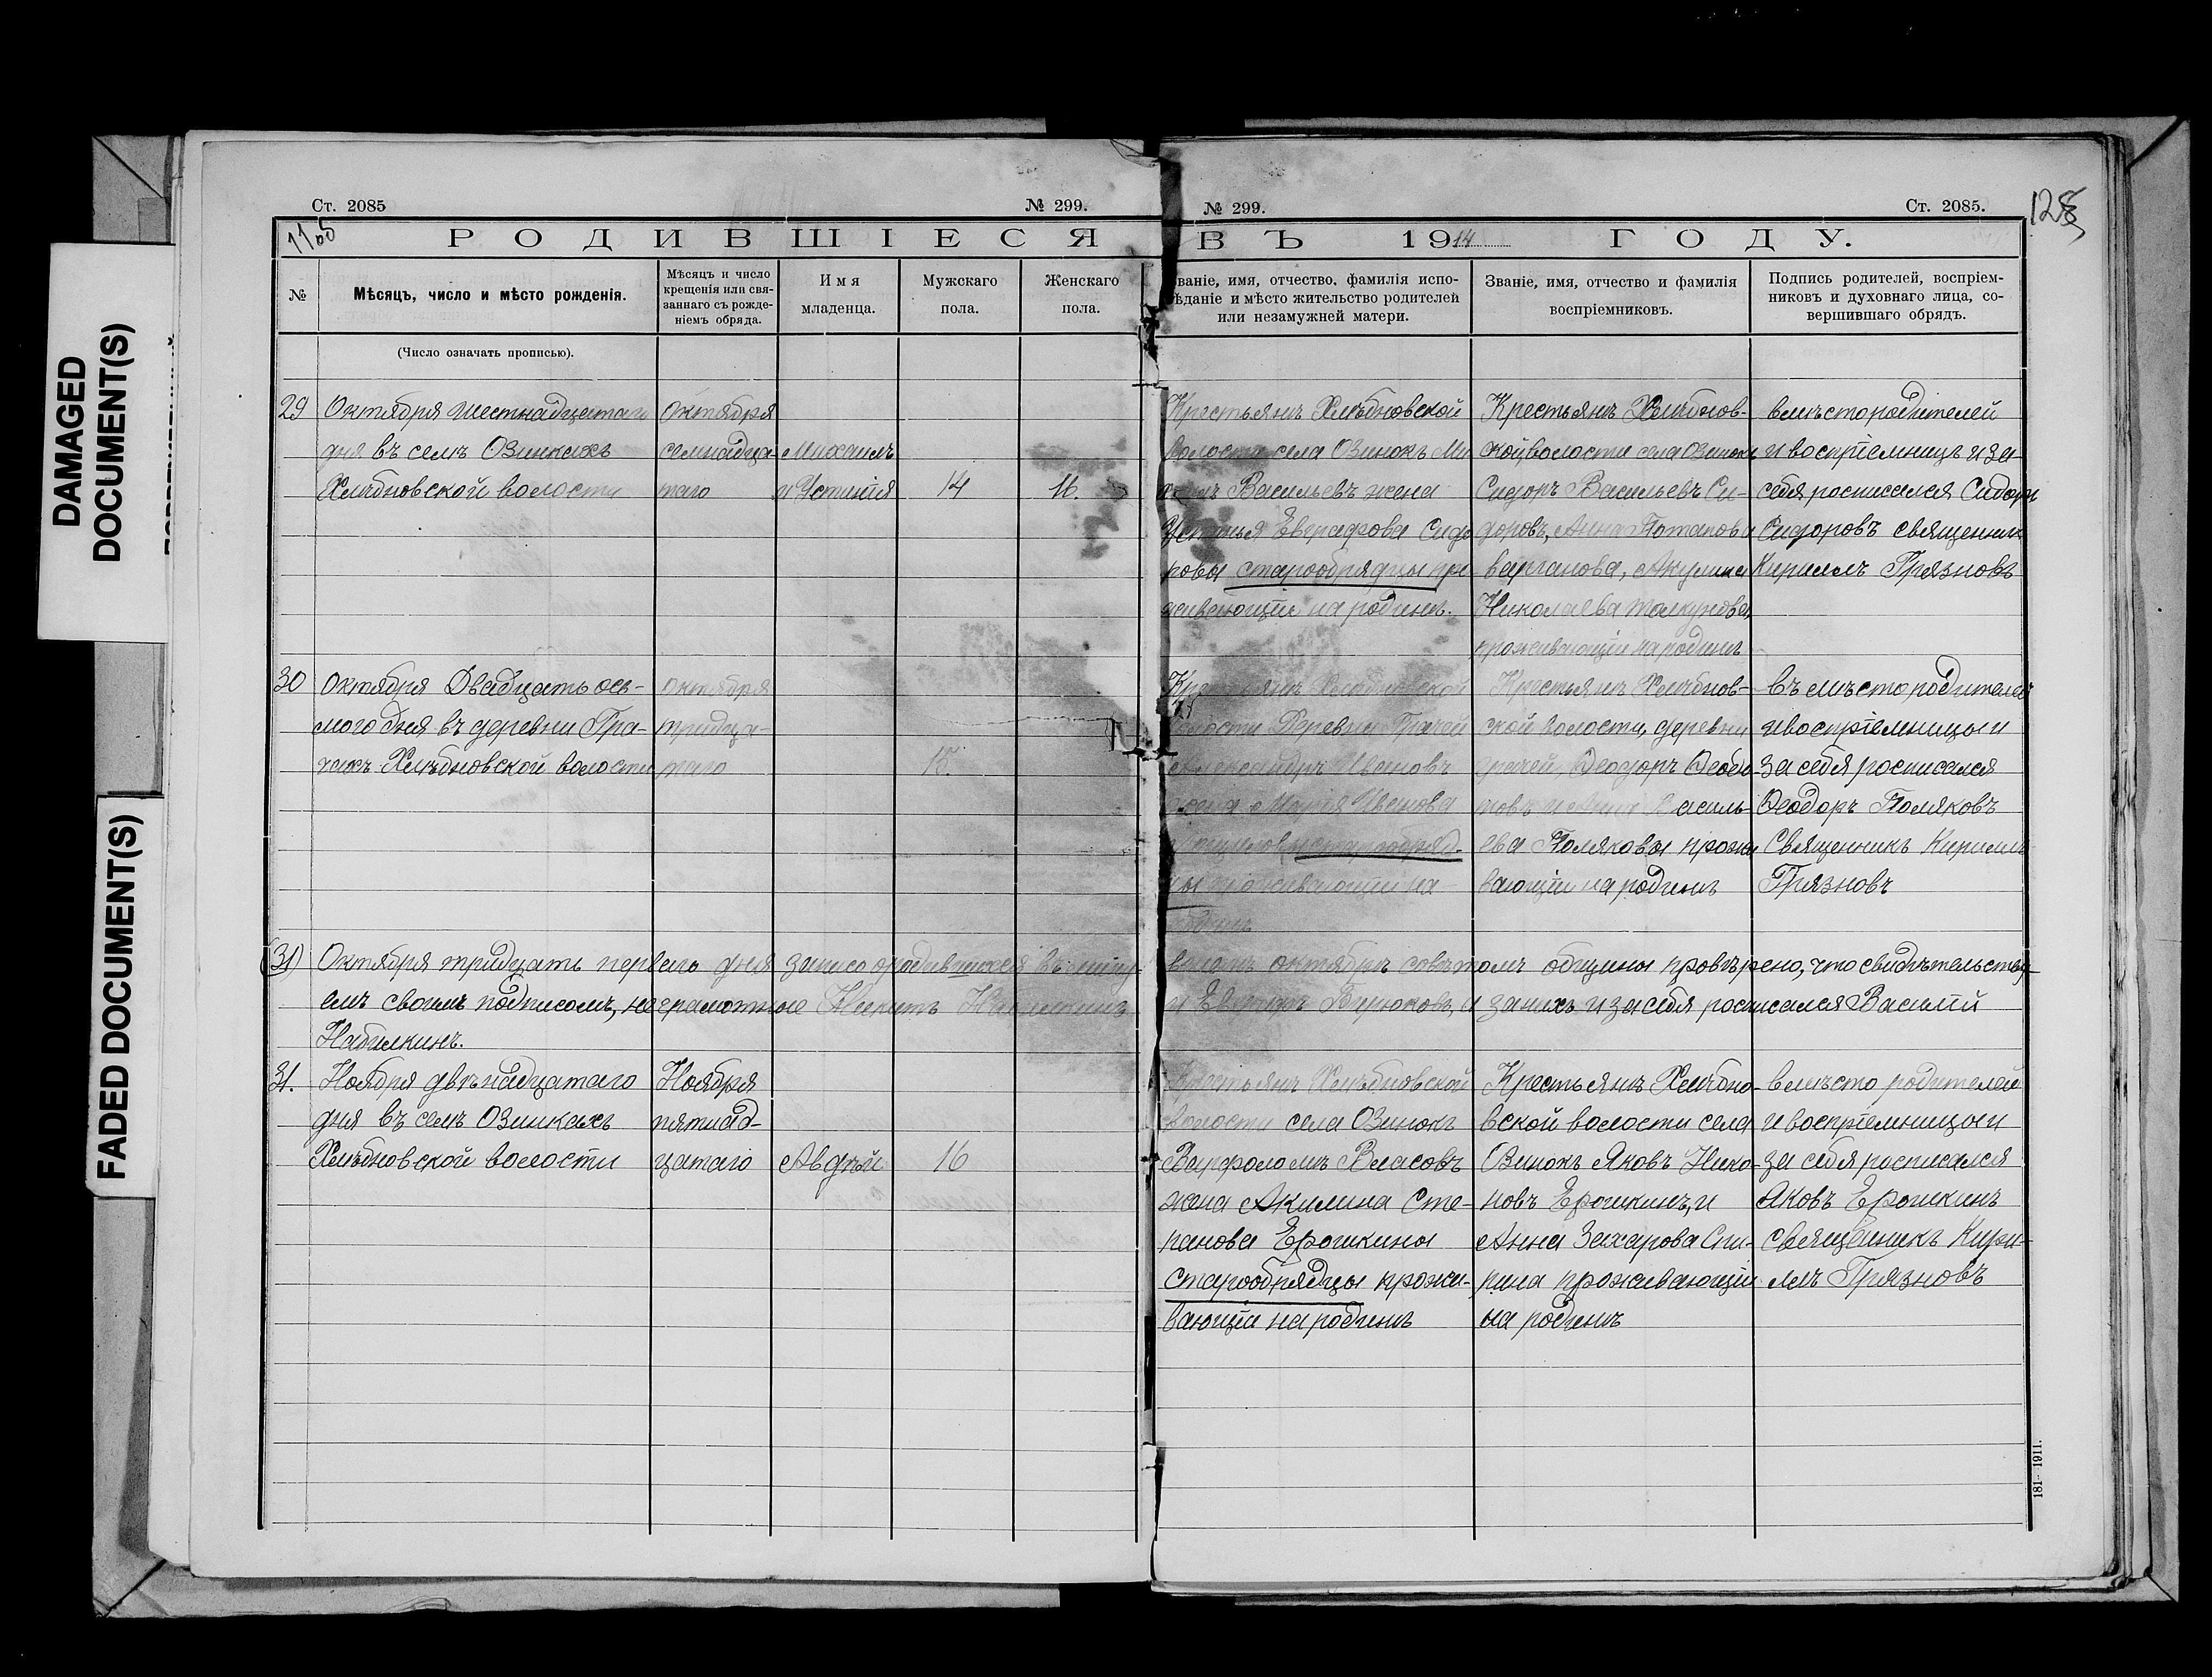 DAMAGED
DOCUMENT(S)
FADED DOCUMENT(S)
Ст. 2085
№ 299.
№ 299.
Ст. 2085.
РОДИВШІЕСЯ ВЪ 1914 ГОДУ.
№
Мѣсяцъ, число и мѣсто рожденія.
Мѣсяцъ и число
крещенія или свя-
заннаго съ рожде-
ніемъ обряда.
Имя
младенца.
Мужскаго
пола.
Женскаго
пола.
званіе, имя, отчество, фамилія испо-
вѣданіе и мѣсто жительство родителей
или незамужней матери.
Званіе, имя, отчество и фамилія
воспріемниковъ.
Подпись родителей, воспріем-
никовъ и духовнаго лица, со-
вершившаго обрядъ.
(Число означать прописью).
29
Октября шестнадцатаго
дня въ селѣ Озинкахъ
Хлѣбновской волости
Октября
семнадца-
таго
Михаилъ
и Устинія
14
16.
Крестьянъ Хлѣбновской
волости села Озинокъ Ми
Васильевъ жена
Устинья Евграфова Сидо
ровы старообрядцы про
живающіи на родинѣ.
Крестьянъ Хлѣбнов-
ской волости села Озинокъ
Сидоръ Васильевъ Си-
доровъ, Анна Потапова
варганова, Акулина
Николаева Толкунова,
проживающіи на родинѣ
вмѣсто родителей
и воспріемницъ и за
себя росписался Сидоръ
Сидоровъ священникъ
Кириллъ Грязновъ
30
Октября Двадцать ось-
мого дня въ деревни Гра-
чахъ Хлѣбновской волости
октября
тридца-
таго
15.
Крестьянъ Хлѣбновской
волости Деревни Грачей
Александръ Ивановъ
жена Марія Иванова
старообряд-
цы проживающіи на
родинѣ
Крестьянъ Хлѣбнов-
ской волости, деревни
грачей, Ѳеодоръ Ѳеодо
ровъ и Анна Василь-
ева Поляковы прожи
вающіи на родинѣ
въ мѣсто родителей
и воспріемницы и
за себя росписался
Ѳеодоръ Поляковъ
Священникъ Кириллъ
Грязновъ
(31) Октября тридцать перваго дня запись о родившихся въ мину- вшемъ октябрѣ совѣтомъ общины провѣрено, что свидѣтельству-
емъ своимъ подписомъ, неграмотные Никитъ и Бирюковъ, и за нихъ и за себя росписался Василій
Набилкинъ.
31.
Ноября двѣнадцатаго
дня въ селѣ Озинкахъ
Хлѣбновской волости
Ноября
пятнад-
цатаго
Авдѣй
16
Крестьянъ Хлѣбновской
волости села Озинокъ
Варфоломъ Власовъ
жена Акилина Сте-
панова Ерошкины
старообрядцы прожи-
вающіи на родинѣ
Крестьянъ Хлѣбно-
вской волости села
Озинокъ Яковъ Нико-
новъ Ерошкинъ, и
Анна Захарова Спи-
рина проживающіи
на родинѣ
вмѣсто родителей
и воспріемницы и
за себя росписался
Яковъ Ерошкинъ
священникъ Кири-
лъ Грязновъ
181- 1911.